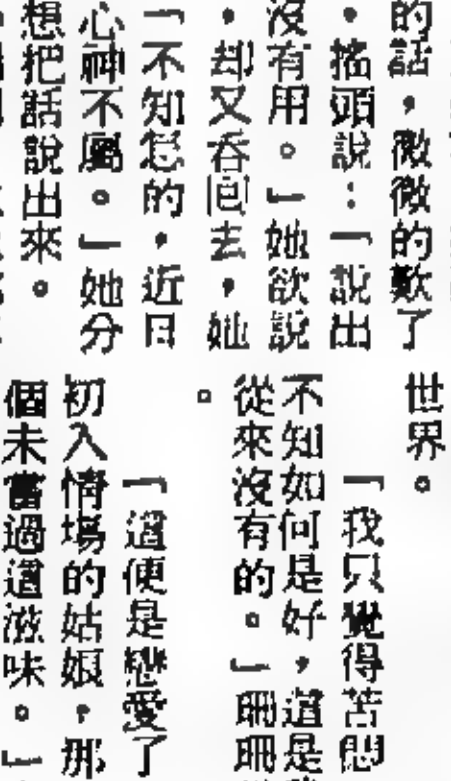 的話，微微的歎了
，搖頭說：「說出
沒有用。」她欲說
，却又吞回去，她
「不知怎的，近日
心神不屬。」她分
想把話說出來。
世界。
「我只覺得苦悶
不知如何是好，這是
從來沒有的。」珊珊
。
「這便是戀愛了
初入情場的姑娘，那
個未嘗過這滋味。」